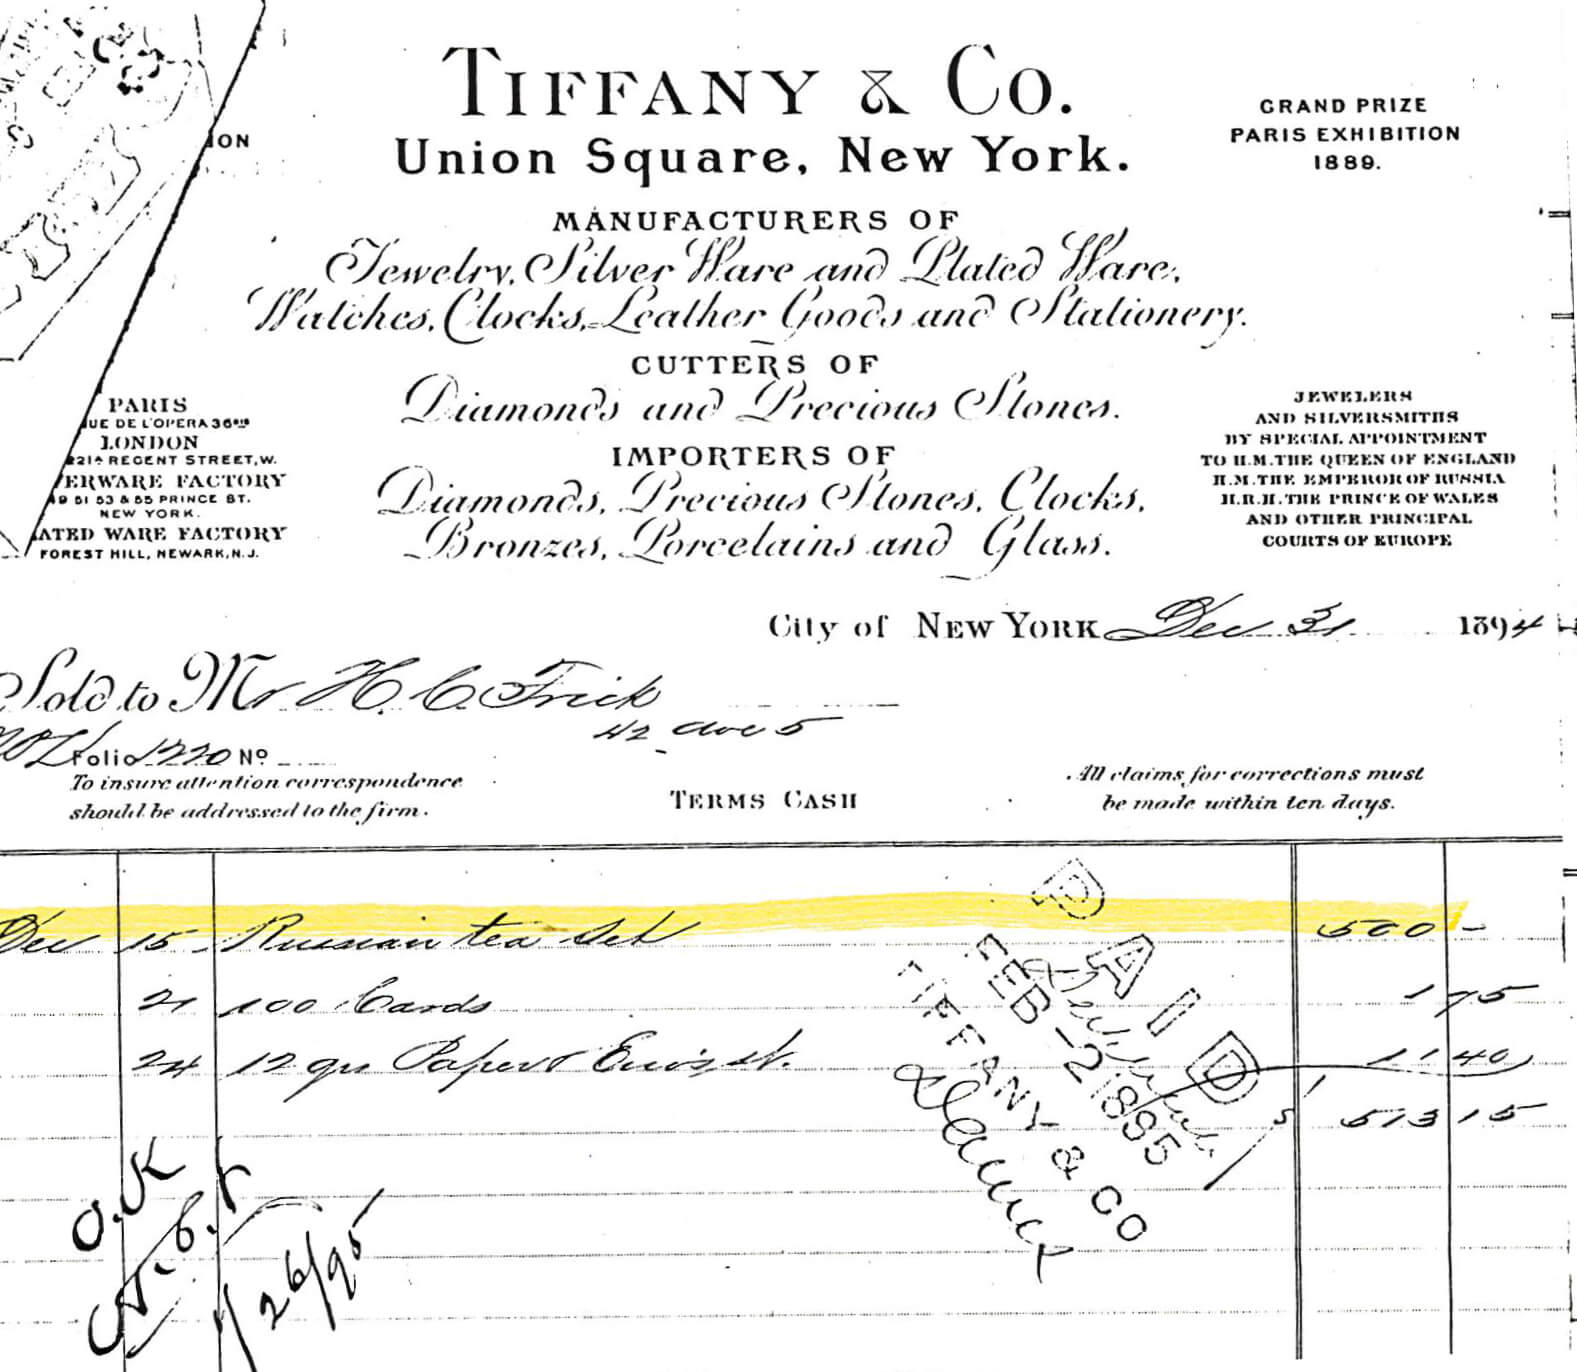 TIFFANY & Co.
Union Square, New York.
GRAND PRIZE
PARIS EXHIBITION
1889.
ION
MANUFACTURERS OF
Jewelry, Silver Ware and Plated Ware,
Watches, Clocks, Leather Goods and Stationery.
CUTTERS OF
Diamonds and Precious Stones.
IMPORTERS OF
Diamonds, Precious Stones, Clocks,
Bronzes, Porcelains and Glass.
PARIS
UE DE L'OPERA 36BIS
LONDON
221A REGENT STREET, W.
ERWARE FACTORY
49 51 53 & 55 PRINCE ST.
NEW YORK.
ATED WARE FACTORY
FOREST HILL, NEWARK, N.J.
JEWELERS
AND SILVERSMITHS
BY SPECIAL APPOINTMENT
TO H.M. THE QUEEN OF ENGLAND
H.M. THE EMPEROR OF RUSSIA
H.R.H. THE PRINCE OF WALES
AND OTHER PRINCIPAL
COURTS OF EUROPE
City of NEW YORK Dec 31 1894
Sold to Mr H. C. Frick
42 Ave 5
Folio 1220 No
To insure attention correspondence
should be addressed to the firm.
TERMS CASH
All claims for corrections must
be made within ten days.
Dec 15 Russian tea Set 500 -
21 100 Cards 1 75
24 12 qrs Paper & Envs st. 11 40
513 15
PAID
FEB -2 1895
TIFFANY & CO
O.K
H.C.F
1/26/95